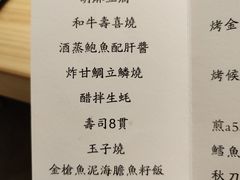 和牛壽喜燒
酒蒸鮑魚配肝醬
炸甘鯛立鱗燒
醋拌生蚝
壽司8貫
玉子燒
金槍魚泥海膽魚籽飯
烤金
烤候
煎a5
鱈魚
秋刀